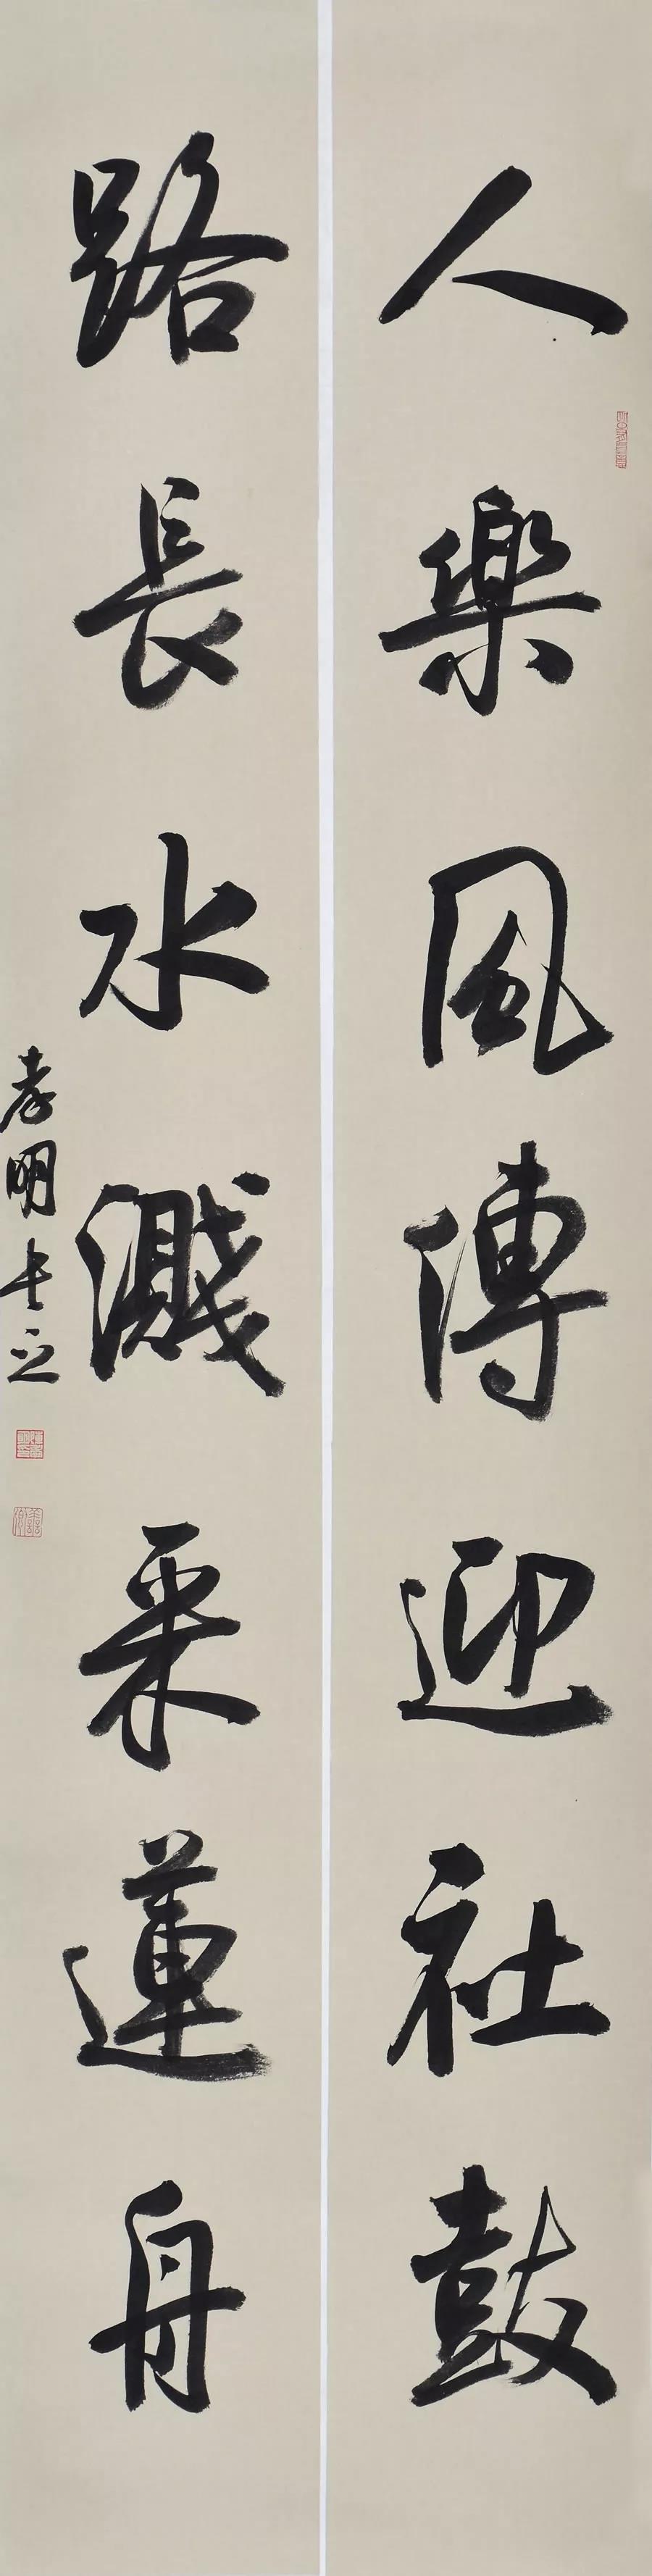 人樂風傳迎社鼓
路長水濺采蓮舟
孝明